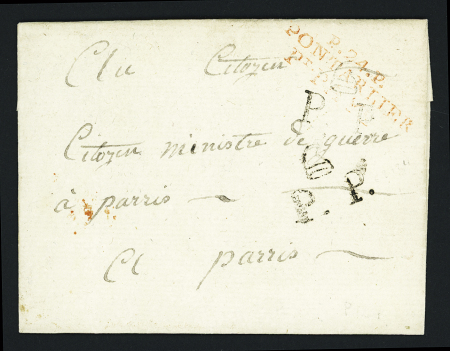 Au Citoyen
P.24.P.
PONTARLIER
P. P.
Citoyen ministre de guerre
P.
à parris
A parris